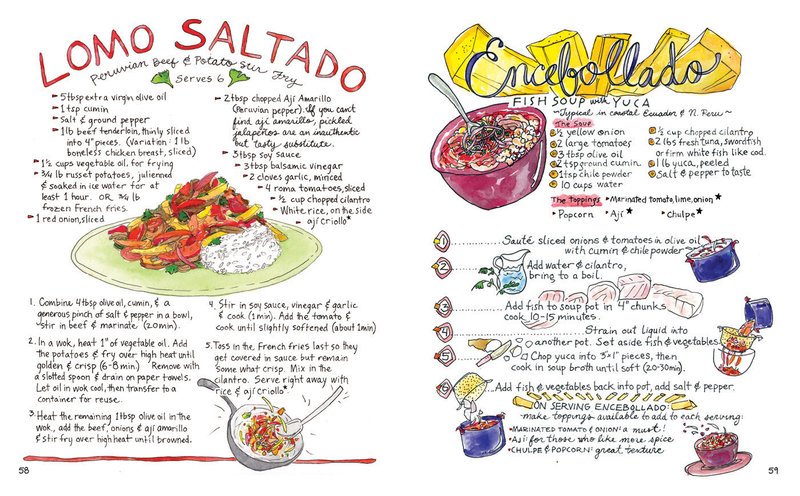 LOMO SALTADO
Peruvian Beef & Potato Stir Fry
Serves 6
5 tbsp extra virgin olive oil
1 tsp cumin
Salt & ground pepper
1 lb beef tenderloin, thinly sliced
into 4" pieces. (Variation: 1 lb
boneless chicken breast, sliced)
1 1/2 cups vegetable oil for frying
3/4 lb russet potatoes, julienned
& soaked in ice water for at
least 1 hour. OR 3/4 lb
frozen French fries.
1 red onion, sliced
2 tbsp chopped Ají Amarillo
(Peruvian pepper). If you can't
find ají amarillos, pickled
jalapeños are an inauthentic
but tasty substitute.
3 tbsp soy sauce
3 tbsp balsamic vinegar
2 cloves garlic, minced
4 roma tomatoes, sliced
1/2 cup chopped cilantro
White rice, on the side
ají criollo*
1. Combine 4 tbsp olive oil, cumin, & a
generous pinch of salt & pepper in a bowl,
stir in beef & marinate (20 min).
2. In a wok, heat 1" of vegetable oil. Add
the potatoes & fry over high heat until
golden & crisp (6-8 min). Remove with
a slotted spoon & drain on paper towels.
Let oil in wok cool, then transfer to a
container for reuse.
3. Heat the remaining 1 tbsp olive oil in the
wok, add the beef, onions & ají amarillo
& stir fry over high heat until browned.
4. Stir in soy sauce, vinegar & garlic
& cook (1 min). Add the tomato &
cook until slightly softened (about 1 min)
5. Toss in the French fries last so they
get covered in sauce but remain
some what crisp. Mix in the
cilantro. Serve right away with
rice & ají criollo*
58
Encebollado
FISH SOUP with YUCA
~Typical in coastal Ecuador & N. Peru~
The Soup
1/2 yellow onion
2 large tomatoes
3 tbsp olive oil
2 tsp ground cumin
1 tsp chile powder
10 cups water
1/2 cup chopped cilantro
2 lbs fresh tuna, swordfish
or firm white fish like cod.
1 lb yuca, peeled
Salt & pepper to taste
The toppings
Marinated tomato, lime, onion*
Popcorn
Ají*
Chulpe*
1 Sauté sliced onions & tomatoes in olive oil
with cumin & chile powder
2 Add water & cilantro,
bring to a boil.
3 Add fish to soup pot in 4" chunks
cook 10-15 minutes.
4 Strain out liquid into
another pot. Set aside fish & vegetables
5 Chop yuca into 3"x1" pieces, then
cook in soup broth until soft (20-30 min).
6 Add fish & vegetables back into pot, add salt & pepper.
ON SERVING ENCEBOLLADO:
make toppings available to add to each serving:
MARINATED TOMATO & ONION: a must!
Ají: for those who like more spice
CHULPE & POPCORN: great texture
59